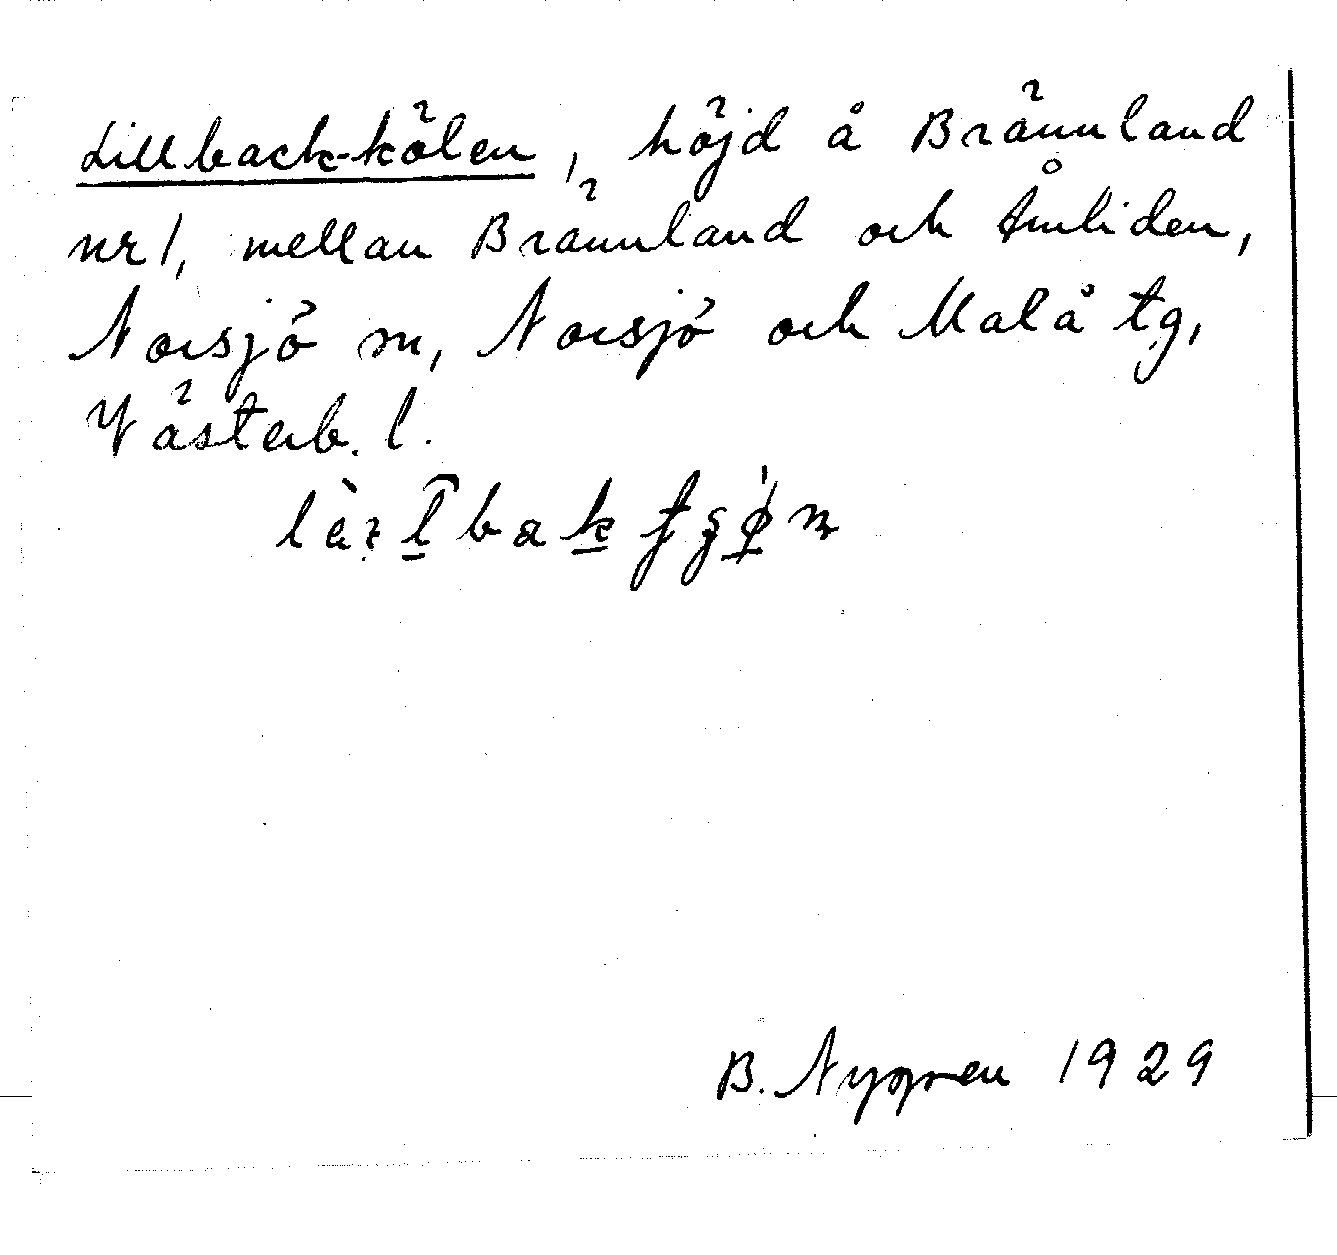 Lillback-kölen, höjd å Brännland
nr 1, mellan Brännland och Åmliden,
Norsjö sn, Norsjö och Malå tg,
Västerb. l.
B. Nygren 1929